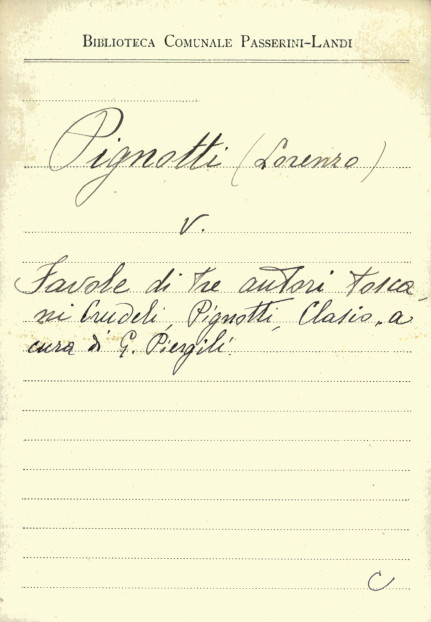 BIBLIOTECA COMUNALE PASSERINI-LANDI
Pignotti (Lorenzo)
v.
Favole di tre autori tosca-
ni Crudeli, Pignotti, Clasio, a
cura di G. Piergili.
C